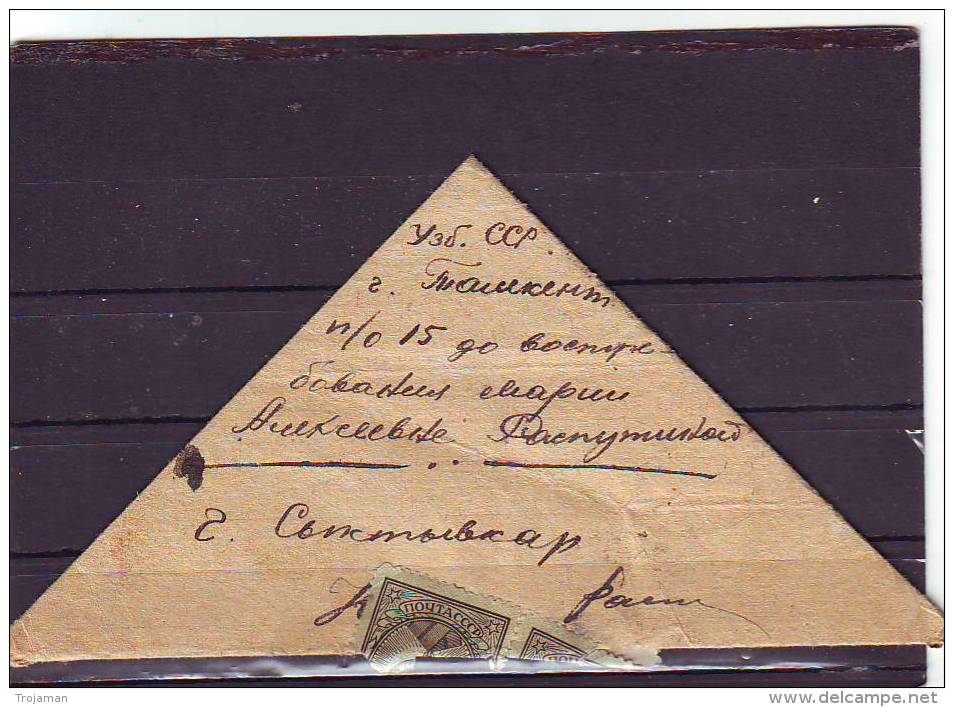 Узб. ССР.
г. Ташкент
п/о 15 до востре-
бования Марии
Алексеевне Распутиной
г. Сыктывкар
ПОЧТА СССР
Trojaman
www.delcampe.net